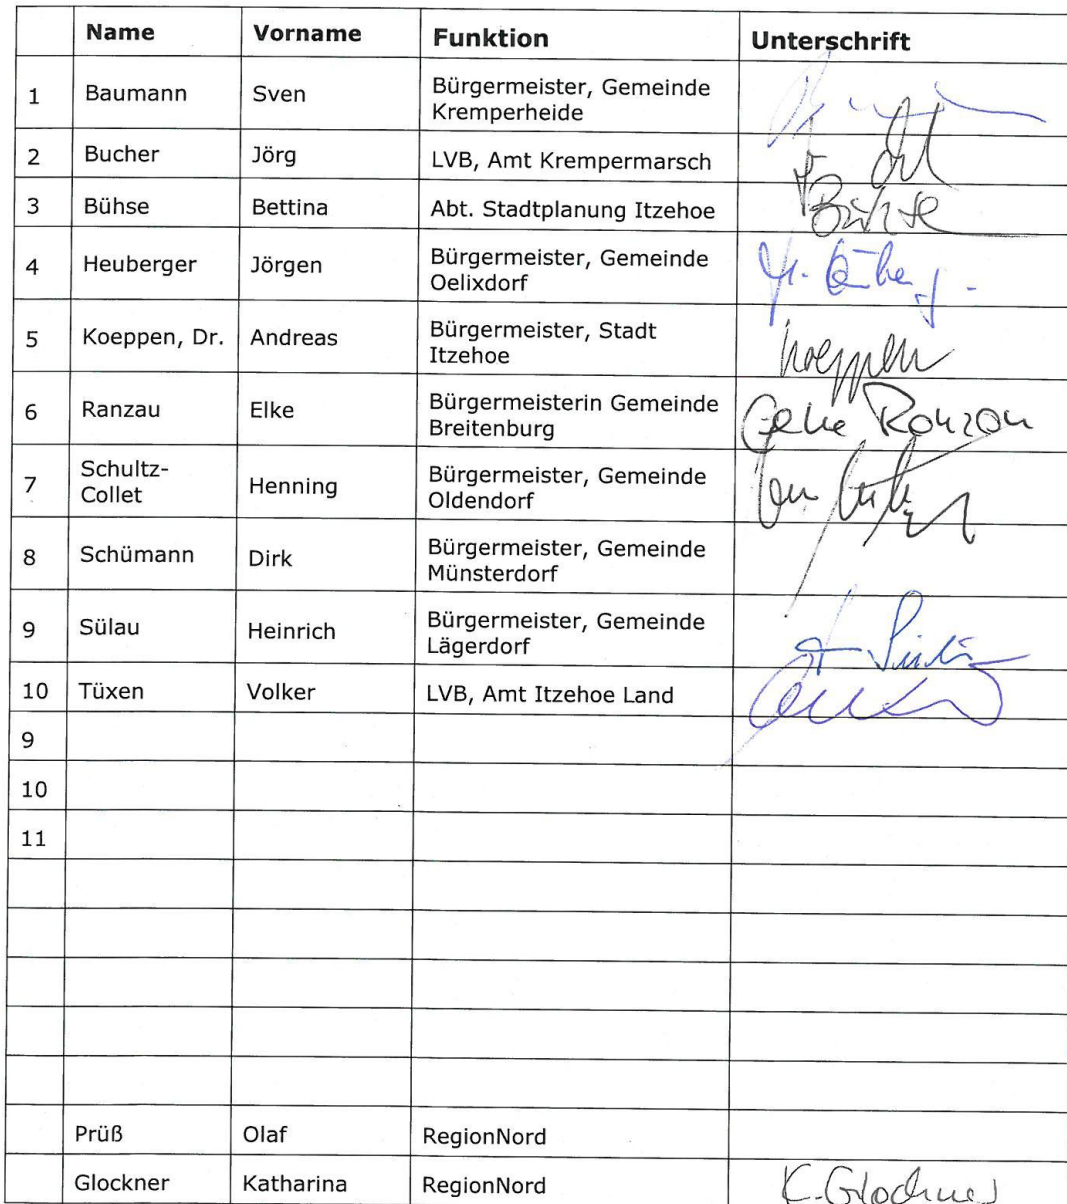 Name Vorname Funktion Unterschrift
1 Baumann Sven Bürgermeister, Gemeinde
Kremperheide
2 Bucher Jörg LVB, Amt Krempermarsch
3 Bühse Bettina Abt. Stadtplanung Itzehoe Bühse
4 Heuberger Jörgen Bürgermeister, Gemeinde
Oelixdorf
5 Koeppen, Dr. Andreas Bürgermeister, Stadt
Itzehoe
Koeppen
6 Ranzau Elke Bürgermeisterin Gemeinde
Breitenburg
Elke Ranzau
7 Schultz-
Collet
Henning Bürgermeister, Gemeinde
Oldendorf
8 Schümann Dirk Bürgermeister, Gemeinde
Münsterdorf
9 Sülau Heinrich Bürgermeister, Gemeinde
Lägerdorf
10 Tüxen Volker LVB, Amt Itzehoe Land
9
10
11
Prüß Olaf RegionNord
Glockner Katharina RegionNord K. Glockner